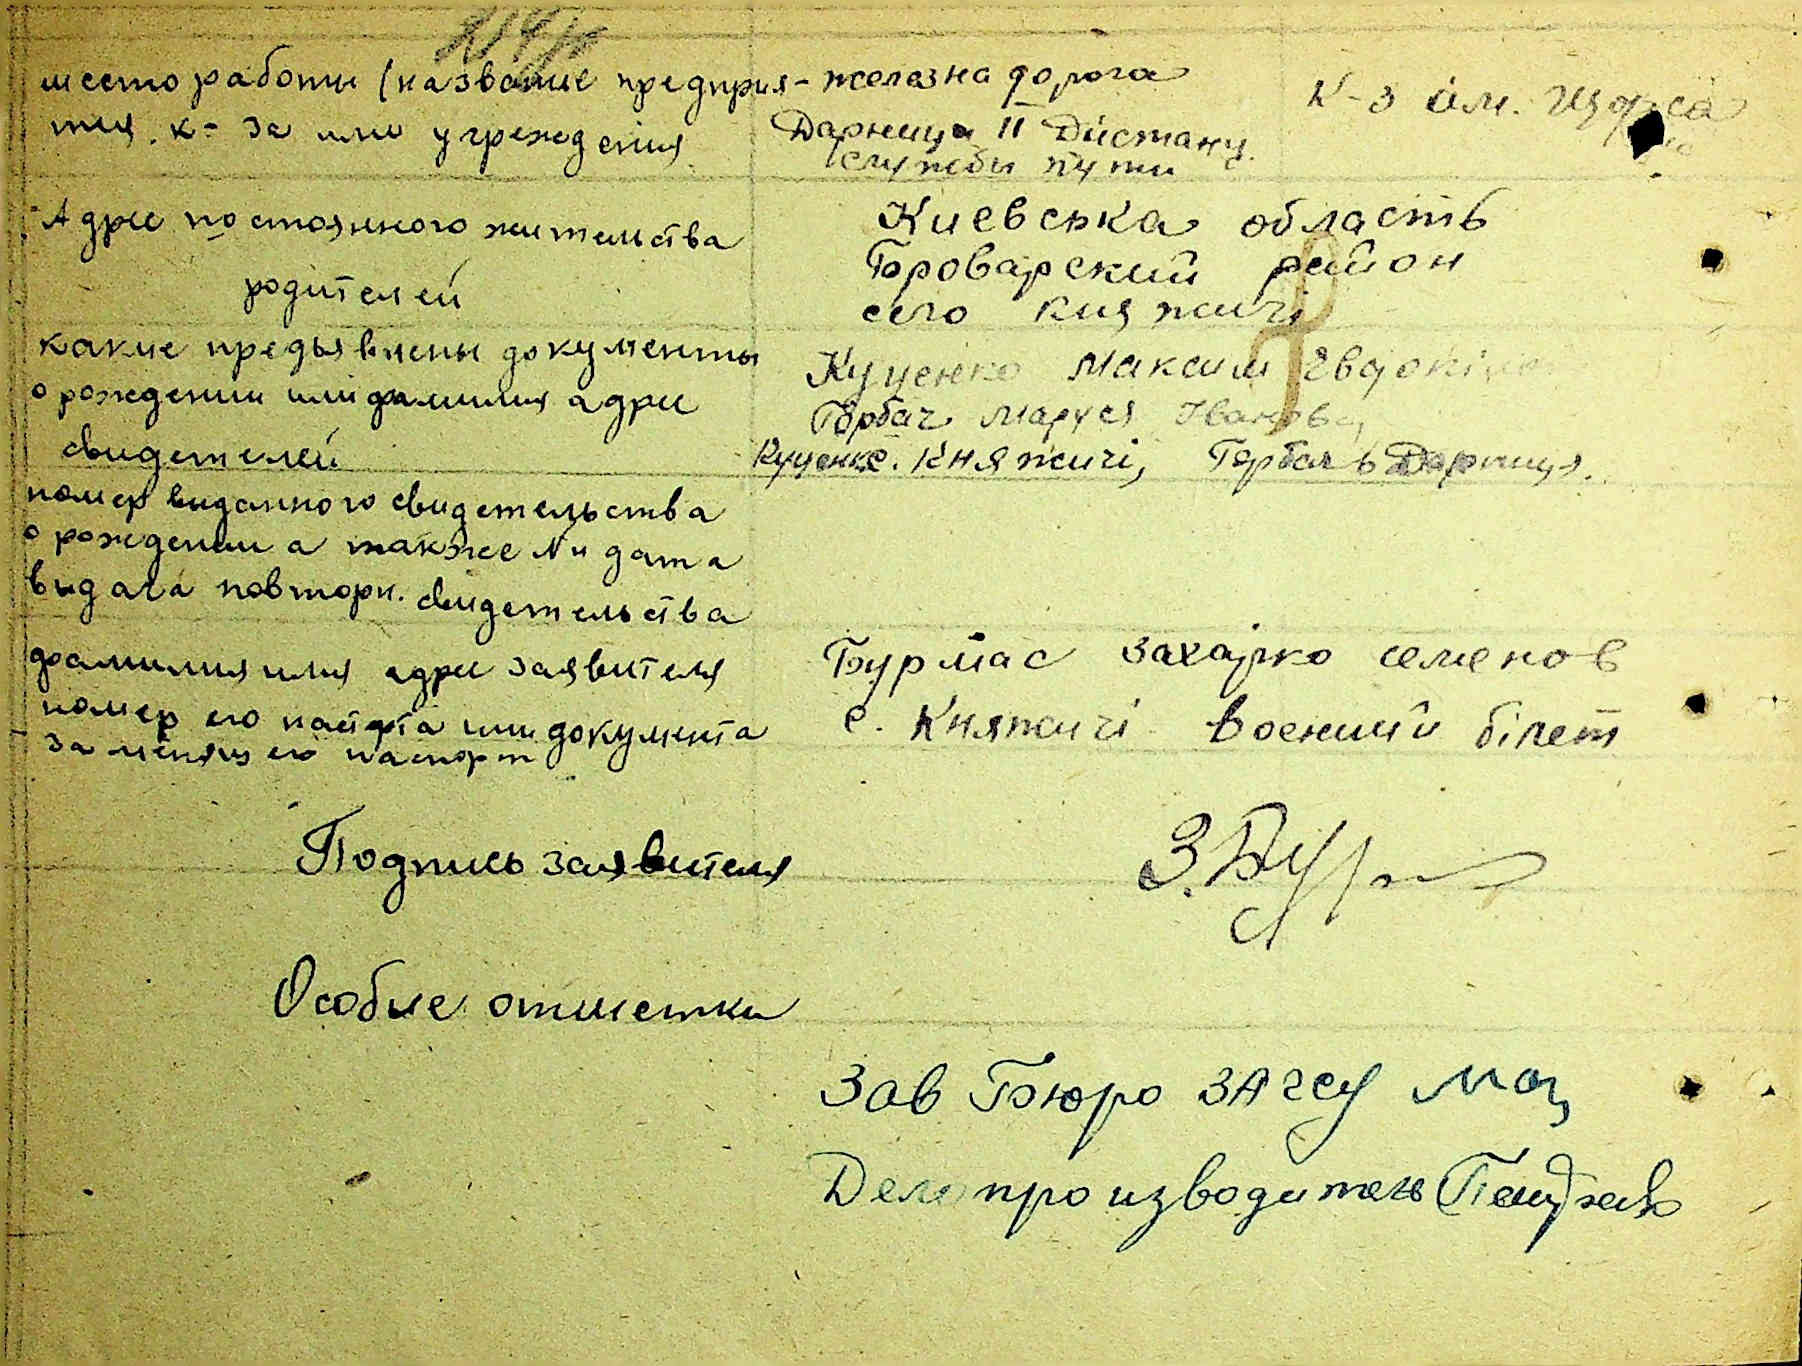 место работы (название предприя- железна дорога
тия. к-за или учреждения Дарница II Дистанц. К-з ім.
службы пути
Адрес постоянного жительства Киевська область
родителей Броварский район
село Княжичі
какие предъявлены документы Куценко Максим
о рождении или фамилия адрес Горбач Маруся Іванов
свидетелей Куценко с. Княжичі, Горбач Дарница.
номер виданного свидетельства
о рождении а также № и дата
видача повторн. свидетельства
фамилия имя адрес заявителя Бурмас Захарко семенов
номер его паспорта или документа с. Княжичі военний білет
заменяющ его паспорт
Подпись заявителя З. Бур
Особые отметки
Зав Бюро ЗАГСУ
Делопроизводитель